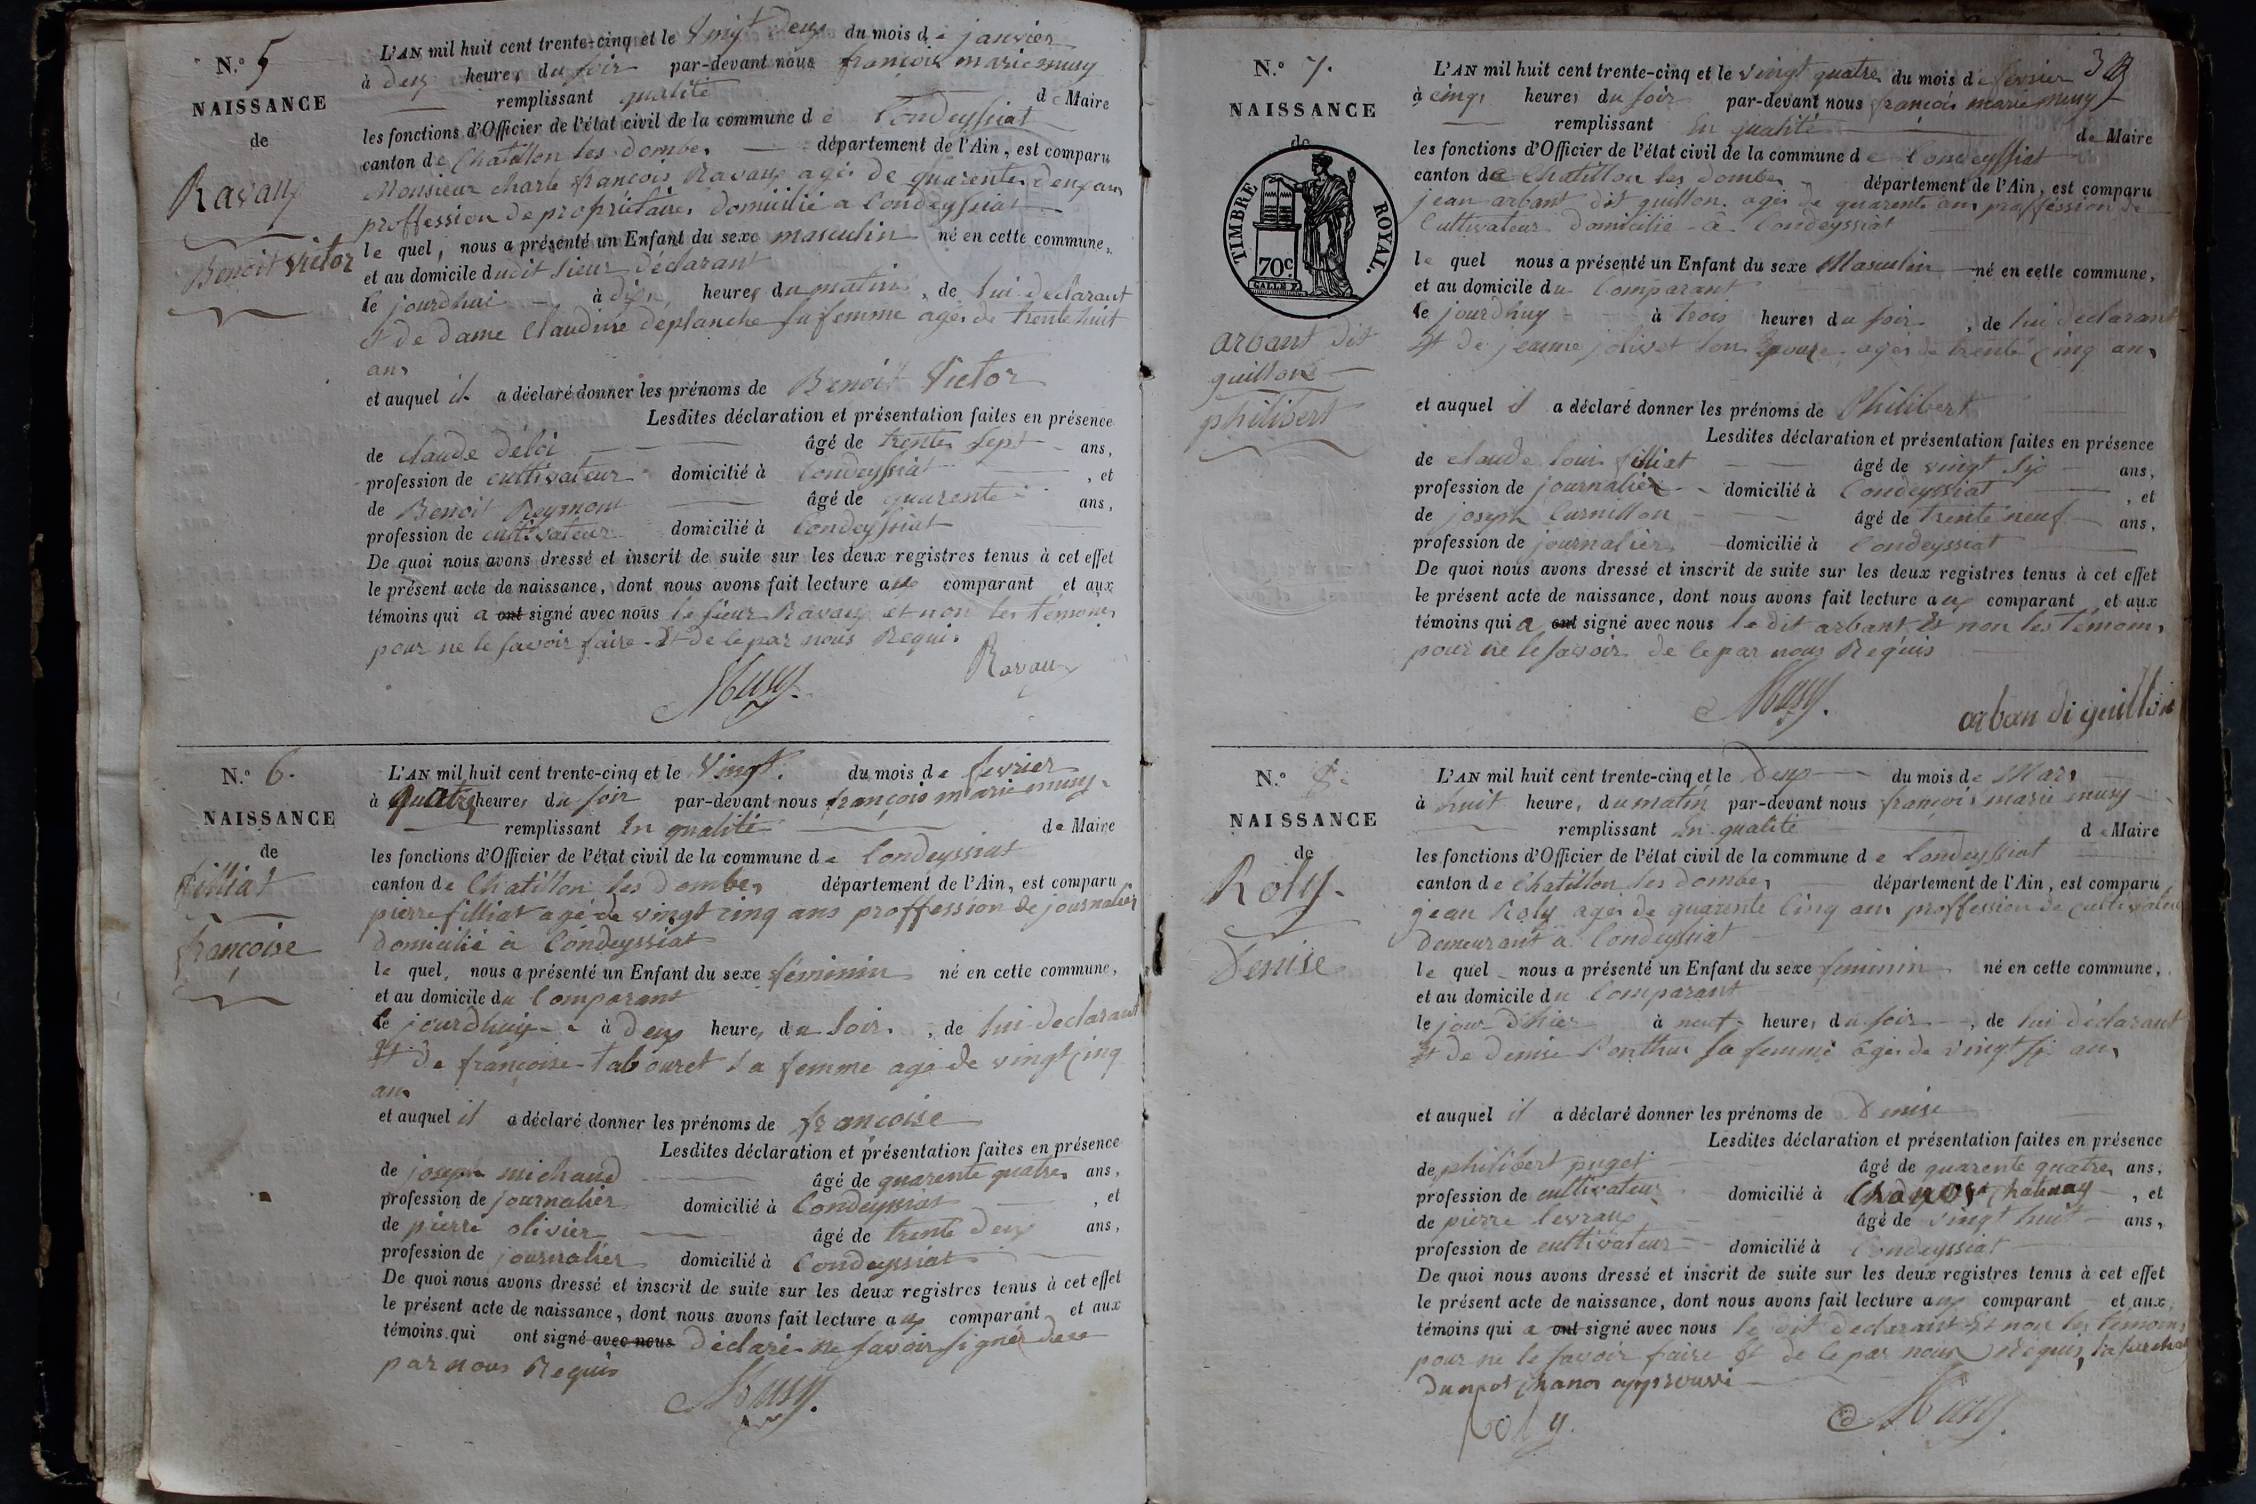 N.º 5
NAISSANCE
de
Ravaux
Benoit Victor
L'AN mil huit cent trente-cinq et le Vingt deux du mois de janvier
à deux heures du soir par-devant nous françois marie musy
remplissant qualité de Maire
les fonctions d'Officier de l'état civil de la commune de Condeyssiat
canton de Chatillon les dombes département de l'Ain, est comparu
Monsieur charle françois Ravaux agés de quarente deux ans
proffession de propriétaire domicilié a Condeyssiat
le quel, nous a présenté un Enfant du sexe masculin né en cette commune,
et au domicile dudit sieur déclarant
le jourdhui à dix heures du matin, de lui déclarant
et de dame Claudine deplanche sa femme agés de trente huit
ans
et auquel il a déclaré donner les prénoms de Benoit Victor
Lesdites déclaration et présentation faites en présence
de claude déloi âgé de trente sept ans,
profession de cultivateur domicilié à Condeyssiat, et
de Benoit Reymont âgé de quarente ans,
profession de cultivateur domicilié à Condeyssiat
De quoi nous avons dressé et inscrit de suite sur les deux registres tenus à cet effet
le présent acte de naissance, dont nous avons fait lecture aux comparant et aux
témoins qui a ont signé avec nous le sieur Ravaux et non les témoins
pour ne le savoir faire Et de ce par nous Requis
Musy. Ravaux
N.º 6.
NAISSANCE
de
filliat
françoise
L'AN mil huit cent trente-cinq et le Vingt. du mois de fevrier
à quatre heures du soir par-devant nous françois marie musy
remplissant En qualité de Maire
les fonctions d'Officier de l'état civil de la commune de Condeyssiat
canton de Chatillon les dombes département de l'Ain, est comparu
pierre filliat agé de vingt cinq ans proffession de journalier
domicilié à Condeyssiat
le quel, nous a présenté un Enfant du sexe féminin né en cette commune,
et au domicile du Comparant
le jourdhuy à deux heures du soir, de lui déclarant
Et de françoise tabouret sa femme agé de vingt cinq
ans
et auquel il a déclaré donner les prénoms de françoise
Lesdites déclaration et présentation faites en présence
de joseph michaud âgé de quarente quatre ans,
profession de journalier domicilié à Condeyssiat, et
de pierre olivier âgé de trente deux ans,
profession de journalier domicilié à Condeyssiat
De quoi nous avons dressé et inscrit de suite sur les deux registres tenus à cet effet
le présent acte de naissance, dont nous avons fait lecture aux comparant et aux
témoins qui ont signé avec nous déclaré ne savoir signer de ce
par nous Requis
Musy.
N.º 7.
NAISSANCE
de
TIMBRE ROYAL.
70c.
arbant dit
guillon
philibert
L'AN mil huit cent trente-cinq et le vingt quatre du mois de fevrier 3
à cinq heures du soir par-devant nous françois marie musy
remplissant En qualité de Maire
les fonctions d'Officier de l'état civil de la commune de Condeyssiat
canton de Chatillon les dombes département de l'Ain, est comparu
jean arbant dit guillon agés de quarente ans proffession de
Cultivateur domicilié à Condeyssiat
le quel nous a présenté un Enfant du sexe Masculin né en cette commune,
et au domicile du Comparant
le jourdhuy à trois heures du soir, de lui déclarant
Et de jeanne jolivet son Epouse agés de trente cinq ans
et auquel il a déclaré donner les prénoms de Philibert
Lesdites déclaration et présentation faites en présence
de claude louis filliat âgé de vingt six ans,
profession de journalier domicilié à Condeyssiat, et
de joseph Curnillon âgé de trente neuf ans,
profession de journalier domicilié à Condeyssiat
De quoi nous avons dressé et inscrit de suite sur les deux registres tenus à cet effet
le présent acte de naissance, dont nous avons fait lecture aux comparant et aux
témoins qui a ont signé avec nous le dit arbant Et non les témoins
pour ne le savoir de ce par nous Requis
Musy. arban di guillon
N.º 8.
NAISSANCE
de
Roly.
Denise
L'AN mil huit cent trente-cinq et le deux du mois de Mars
à huit heures du matin par-devant nous françois marie musy
remplissant En qualité de Maire
les fonctions d'Officier de l'état civil de la commune de Condeyssiat
canton de Chatillon les dombes département de l'Ain, est comparu
jean Roly agés de quarente Cinq ans proffession de cultivateur
demeurant à Condeyssiat
le quel nous a présenté un Enfant du sexe feminin né en cette commune,
et au domicile du Comparant
le jour d'hier à neuf heures du soir, de lui déclarant
Et de denise Ponthus sa femme agés de vingt six ans
et auquel il a déclaré donner les prénoms de Denise
Lesdites déclaration et présentation faites en présence
de philibert puget âgé de quarente quatre ans,
profession de cultivateur domicilié à Chanos Chatenay, et
de pierre levraux âgé de vingt huit ans,
profession de cultivateur domicilié à Condeyssiat
De quoi nous avons dressé et inscrit de suite sur les deux registres tenus à cet effet
le présent acte de naissance, dont nous avons fait lecture aux comparant et aux
témoins qui a ont signé avec nous le dit déclarant Et non les témoins
pour ne le savoir faire Et de ce par nous Requis, la surcharge
du mot chanos approuvé
Roly. Musy